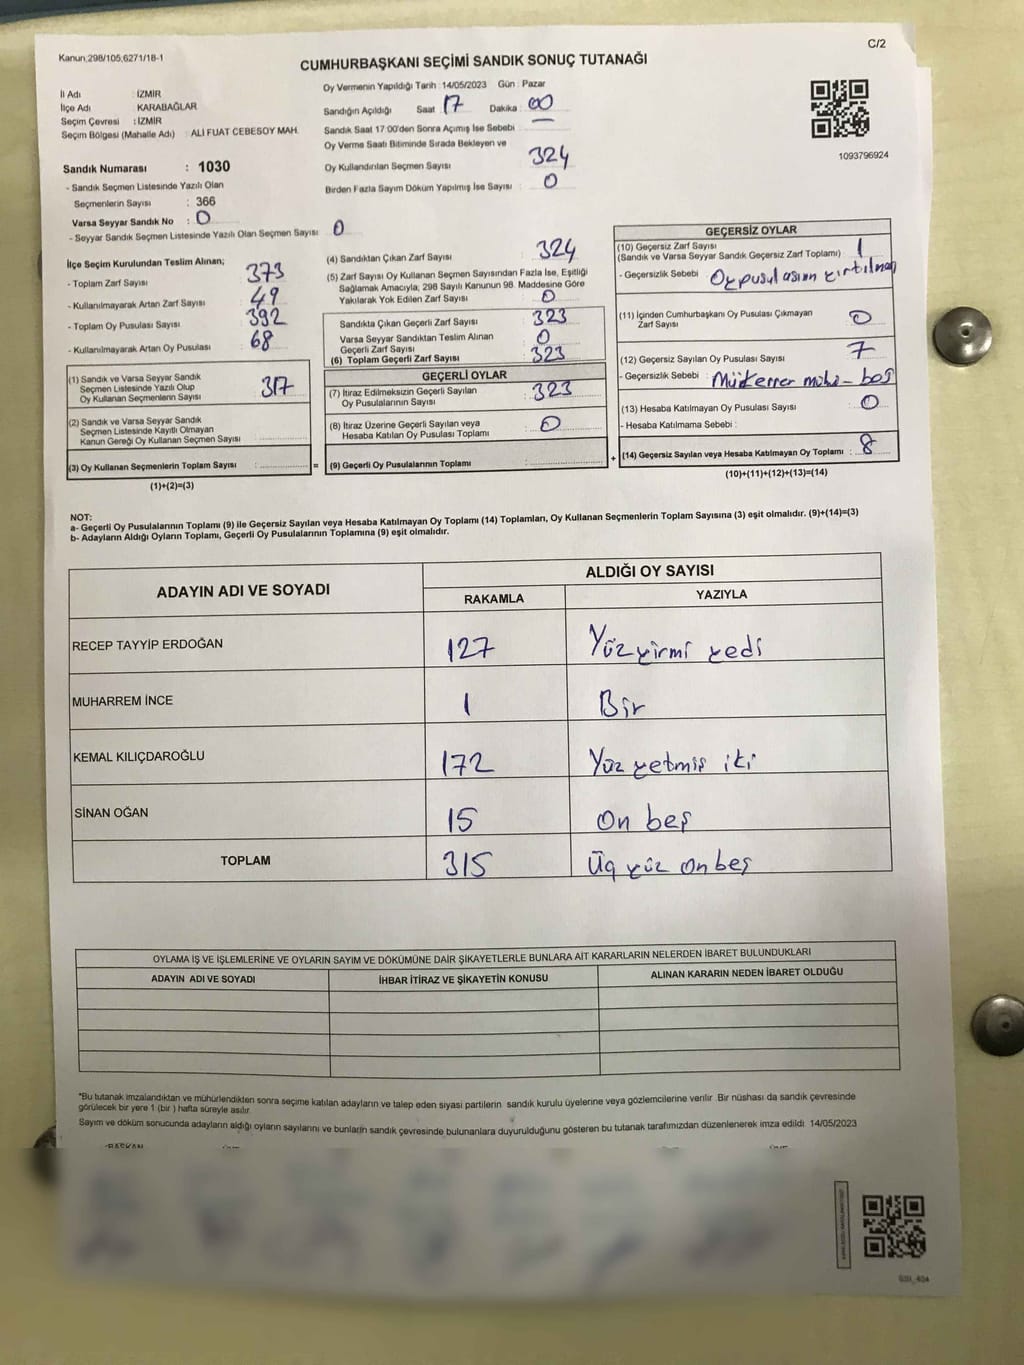 Kanun,298/105,6271/18-1
C/2
CUMHURBAŞKANI SEÇİMİ SANDIK SONUÇ TUTANAĞI
İl Adı : İZMİR
İlçe Adı : KARABAĞLAR
Seçim Çevresi : İZMİR
Seçim Bölgesi (Mahalle Adı) : ALİ FUAT CEBESOY MAH.
Oy Vermenin Yapıldığı Tarih :14/05/2023 Gün : Pazar
Sandığın Açıldığı Saat 17 Dakika : 00
Sandık Saat 17:00'den Sonra Açımış İse Sebebi : —
Oy Verme Saati Bitiminde Sırada Bekleyen ve
Oy Kullandırılan Seçmen Sayısı : 324
Birden Fazla Sayım Döküm Yapılmış İse Sayısı : 0
1093796924
Sandık Numarası : 1030
- Sandık Seçmen Listesinde Yazılı Olan
Seçmenlerin Sayısı : 366
Varsa Seyyar Sandık No : 0
- Seyyar Sandık Seçmen Listesinde Yazılı Olan Seçmen Sayısı : 0
İlçe Seçim Kurulundan Teslim Alınan;
- Toplam Zarf Sayısı : 373
- Kullanılmayarak Artan Zarf Sayısı : 49
- Toplam Oy Pusulası Sayısı : 392
- Kullanılmayarak Artan Oy Pusulası : 68
(1) Sandık ve Varsa Seyyar Sandık
Seçmen Listesinde Yazılı Olup
Oy Kullanan Seçmenlerin Sayısı : 317
(2) Sandık ve Varsa Seyyar Sandık
Seçmen Listesinde Kayıtlı Olmayan
Kanun Gereği Oy Kullanan Seçmen Sayısı :
(3) Oy Kullanan Seçmenlerin Toplam Sayısı :
(1)+(2)=(3)
(4) Sandıktan Çıkan Zarf Sayısı : 324
(5) Zarf Sayısı Oy Kullanan Seçmen Sayısından Fazla İse, Eşitliği
Sağlamak Amacıyla, 298 Sayılı Kanunun 98. Maddesine Göre
Yakılarak Yok Edilen Zarf Sayısı : 0
Sandıkta Çıkan Geçerli Zarf Sayısı : 323
Varsa Seyyar Sandıktan Teslim Alınan
Geçerli Zarf Sayısı : 0
(6) Toplam Geçerli Zarf Sayısı : 323
GEÇERLİ OYLAR
(7) İtiraz Edilmeksizin Geçerli Sayılan
Oy Pusulalarının Sayısı : 323
(8) İtiraz Üzerine Geçerli Sayılan veya
Hesaba Katılan Oy Pusulası Toplamı : 0
= (9) Geçerli Oy Pusulalarının Toplamı :
GEÇERSİZ OYLAR
(10) Geçersiz Zarf Sayısı : 1
(Sandık ve Varsa Seyyar Sandık Geçersiz Zarf Toplamı)
- Geçersizlik Sebebi : Oy pusulasının yırtılması
(11) İçinden Cumhurbaşkanı Oy Pusulası Çıkmayan
Zarf Sayısı : 0
(12) Geçersiz Sayılan Oy Pusulası Sayısı : 7
- Geçersizlik Sebebi : Mükerrer mühü- boş
(13) Hesaba Katılmayan Oy Pusulası Sayısı : 0
- Hesaba Katılmama Sebebi :
+ (14) Geçersiz Sayılan veya Hesaba Katılmayan Oy Toplamı : 8
(10)+(11)+(12)+(13)=(14)
NOT:
a- Geçerli Oy Pusulalarının Toplamı (9) ile Geçersiz Sayılan veya Hesaba Katılmayan Oy Toplamı (14) Toplamları, Oy Kullanan Seçmenlerin Toplam Sayısına (3) eşit olmalıdır. (9)+(14)=(3)
b- Adayların Aldığı Oyların Toplamı, Geçerli Oy Pusulalarının Toplamına (9) eşit olmalıdır.
ADAYIN ADI VE SOYADI
ALDIĞI OY SAYISI
RAKAMLA YAZIYLA
RECEP TAYYİP ERDOĞAN 127 Yüz yirmi yedi
MUHARREM İNCE 1 Bir
KEMAL KILIÇDAROĞLU 172 Yüz yetmiş iki
SİNAN OĞAN 15 On beş
TOPLAM 315 Üç yüz on beş
OYLAMA İŞ VE İŞLEMLERİNE VE OYLARIN SAYIM VE DÖKÜMÜNE DAİR ŞİKAYETLERLE BUNLARA AİT KARARLARIN NELERDEN İBARET BULUNDUKLARI
ADAYIN ADI VE SOYADI İHBAR İTİRAZ VE ŞİKAYETİN KONUSU ALINAN KARARIN NEDEN İBARET OLDUĞU
*Bu tutanak imzalandıktan ve mühürlendikten sonra seçime katılan adayların ve talep eden siyasi partilerin sandık kurulu üyelerine veya gözlemcilerine verilir. Bir nüshası da sandık çevresinde
görülecek bir yere 1 (bir ) hafta süreyle asılır.
Sayım ve döküm sonucunda adayların aldığı oyların sayılarını ve bunların sandık çevresinde bulunanlara duyurulduğunu gösteren bu tutanak tarafımızdan düzenlenerek imza edildi. 14/05/2023